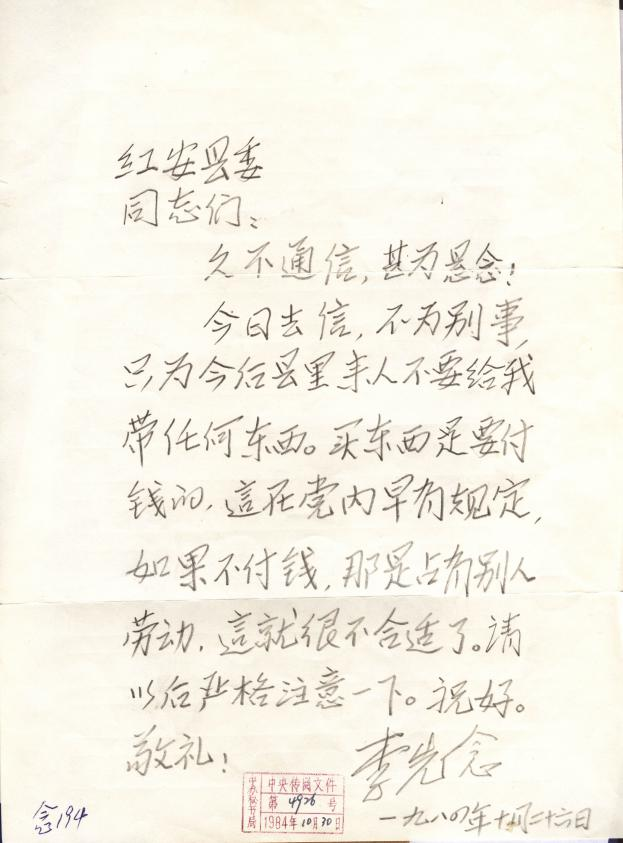 红安县委
同志们：
久不通信，甚为悬念！
今日去信，不为别事，
只为今后县里来人不要给我
带任何东西。买东西是要付
钱的，這在党内早有规定，
如果不付钱，那是占有别人
劳动，這就很不合适了。请
以后严格注意一下。祝好。
敬礼！
李先念
一九八四年十月二十六日
中办秘书局
中央传阅文件
第4926号
1984年10月30日
194